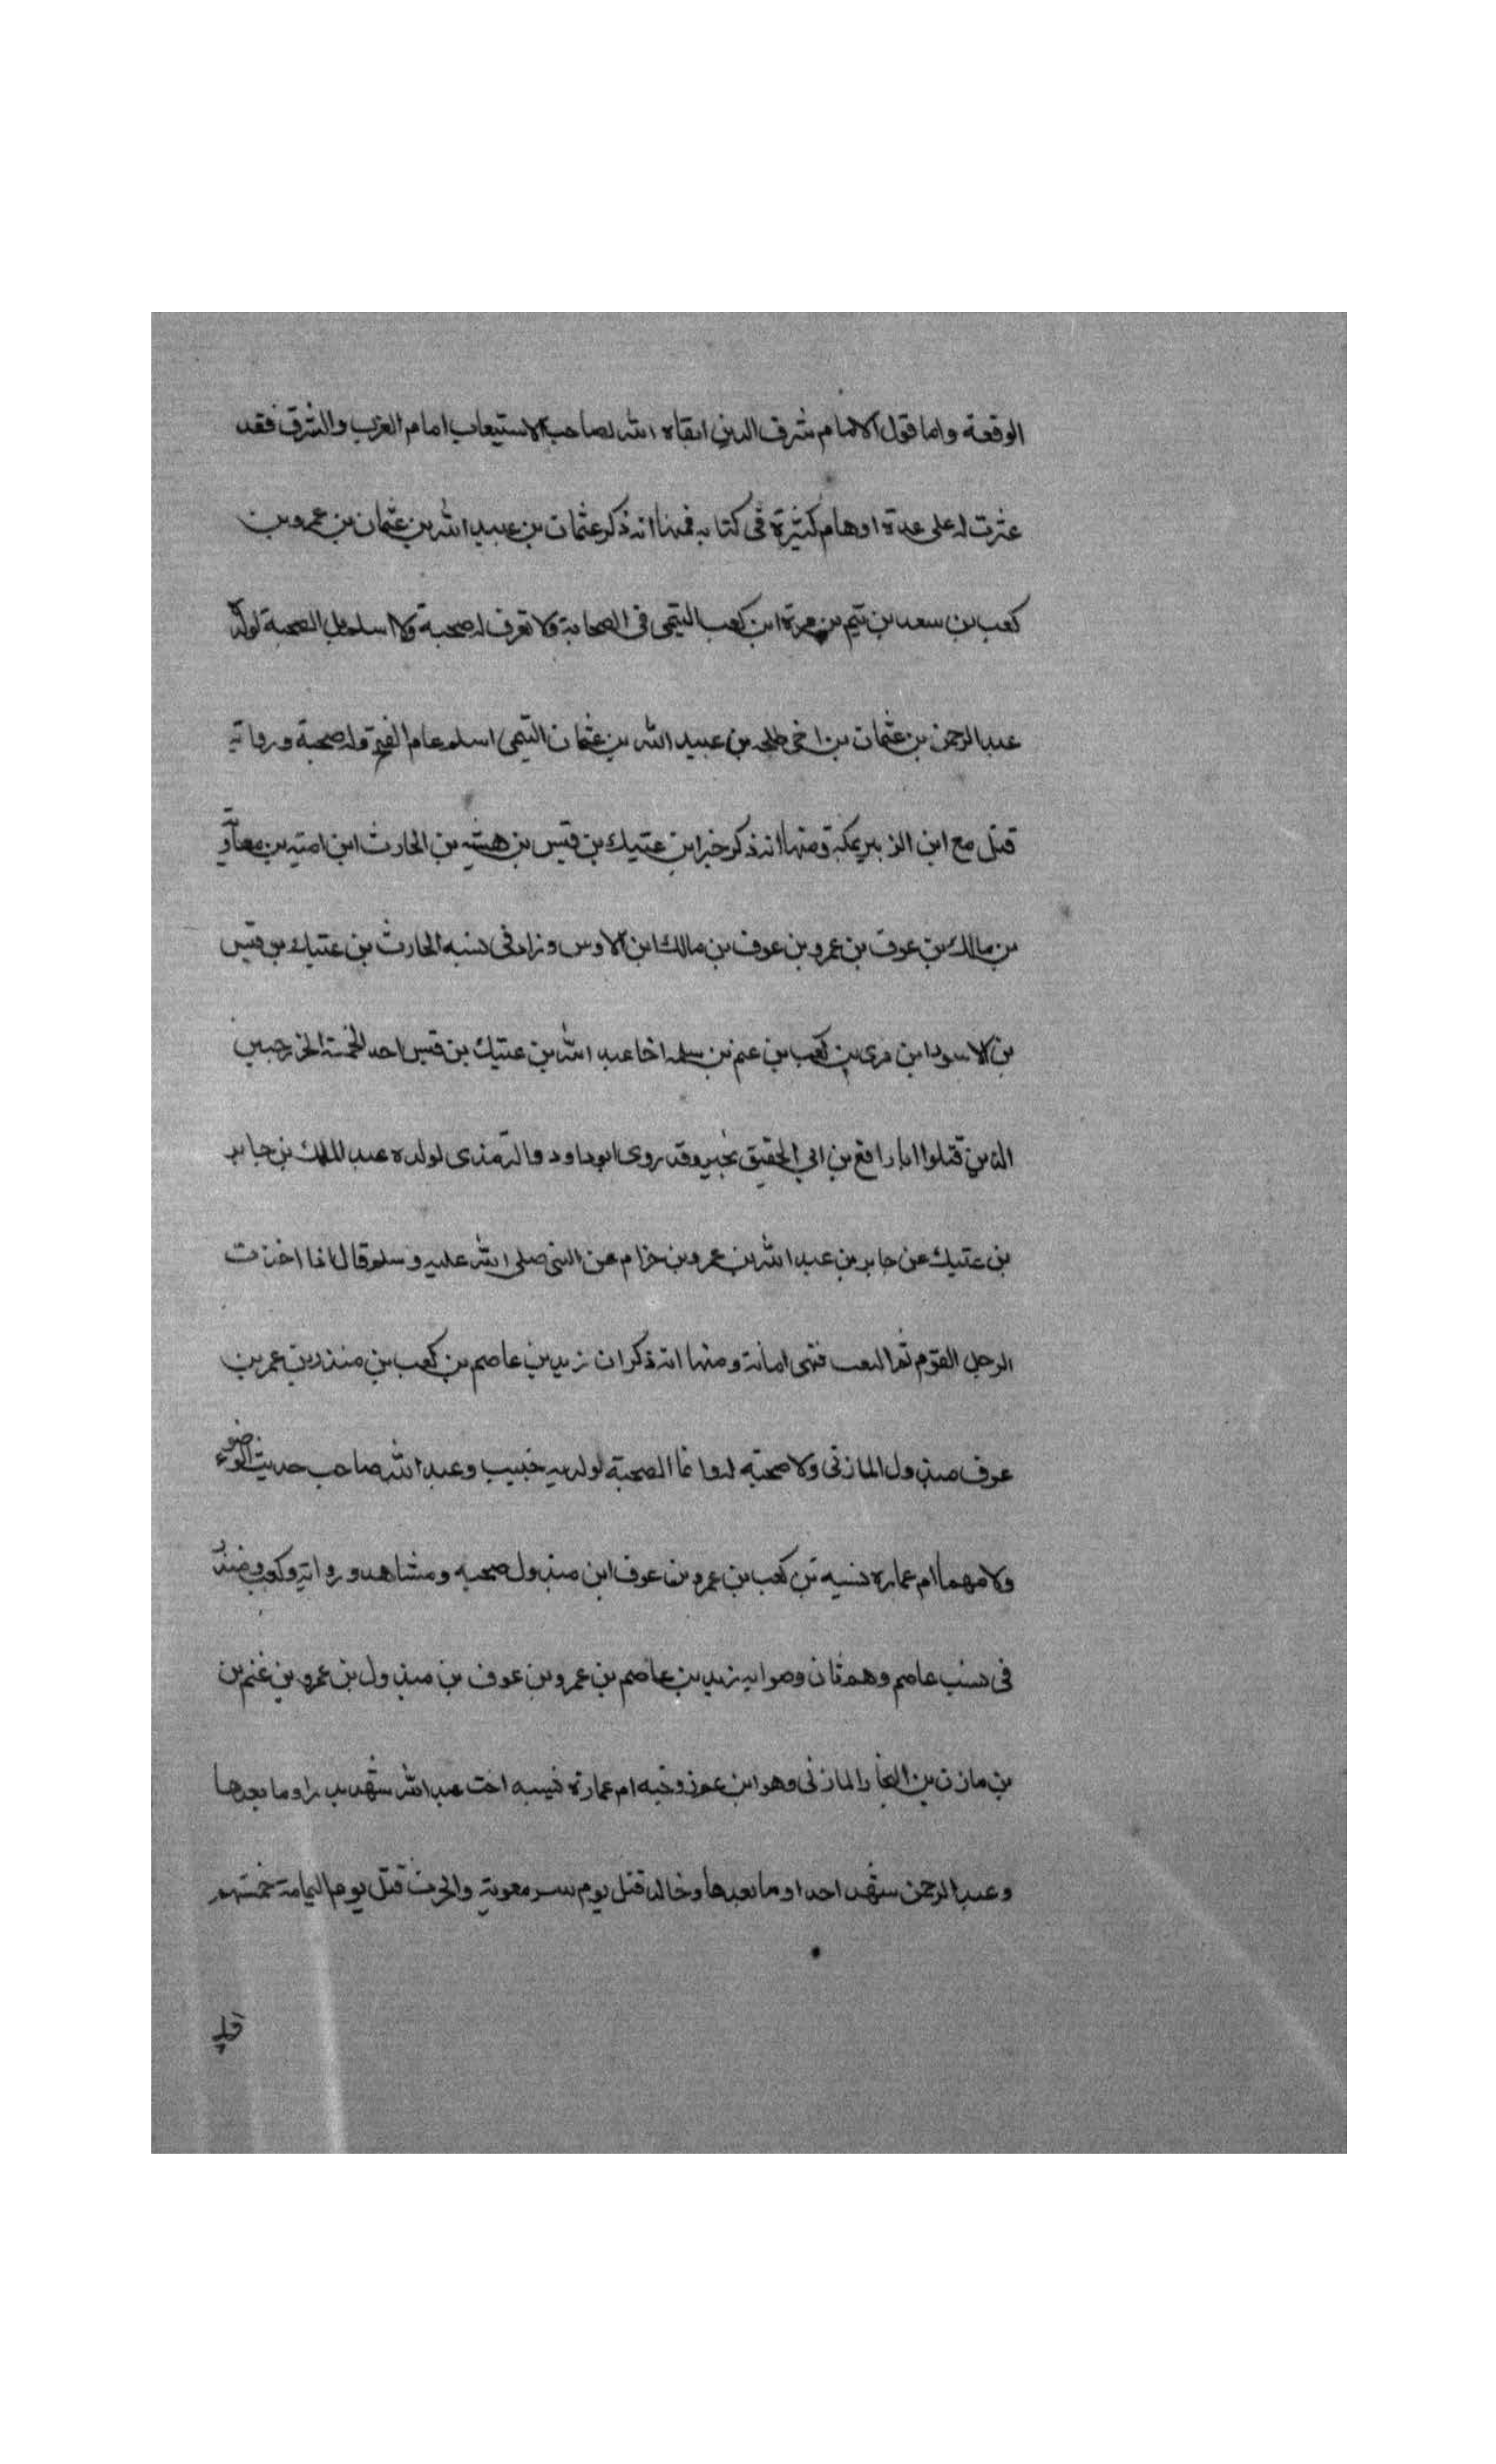 الوقعة واما قول الامام شرف الدين ابقاه الله لصاحب الاستيعاب امام الغرب والشرق فقد
عثرت له على عدة اوهام كثيرة في كتابه فمنها انه ذكر عثمان بن عبيد الله بن عثمان بن عمرو بن
كعب بن سعد بن تيم بن مرة ابن كعب التيمى فى الصحابة ولا تعرف له صحبة ولا اسلام بل الصحبة لولده
عبد الرحمن بن عثمان بن اخى طلحه بن عبيد الله بن عثمان التيمى اسلم عام الفتح وله صحبة ورواية
قتل مع ابن الزبير بمكة ومنها انه ذكر خبر ابن عتيك بن قيس بن هيشه بن الحارث ابن اميه بن معاو
بن مالك بن عوف بن عمرو بن عوف بن مالك ابن الاوس وزاد فى نسبه الحارث بن عتيك بن قيس
بن الاسود ابن مرى بن كعب بن غنم بن سلمه اخا عبد الله بن عتيك بن قيس احد الخمسة الخزرجيين
الذين قتلوا ابا رافع بن ابي الحقيق بخيبر وقد روى ابو داود والترمذى لولده عبد الملك بن جابر
بن عتيك عن جابر بن عبد الله بن عمرو بن حزام عن النبى صلى الله عليه وسلم قال اذا اخذت
الرجل القوم ثم فهى امانة ومنها انه ذكر ان زيد بن عاصم بن كعب بن منذر بن عمر بن
عوف مبذول المازنى ولا صحبته له وانما الصحبة لولديه خبيب وعبد الله صاحب حديث الوضوء
ولامهما ام عماره نسيه بن كعب بن عمرو بن عوف ابن مبذول صحبه ومشاهد ورواية وكعب ومنذر
فى نسب عاصم وهم ثان وصوابه زيد بن عاصم بن عمرو بن عوف بن مبذول بن عمرو بن غنم بن
بن مازن بن النجار المازنى وهو ابن عم زوجته ام عمارة نسيبه اخت عبد الله شهد بدرا وما بعدها
وعبد الرحمن شهد احدا وما بعدها وخالد قتل يوم بير معوية والحرث قتل يوم اليمامة خمستهم